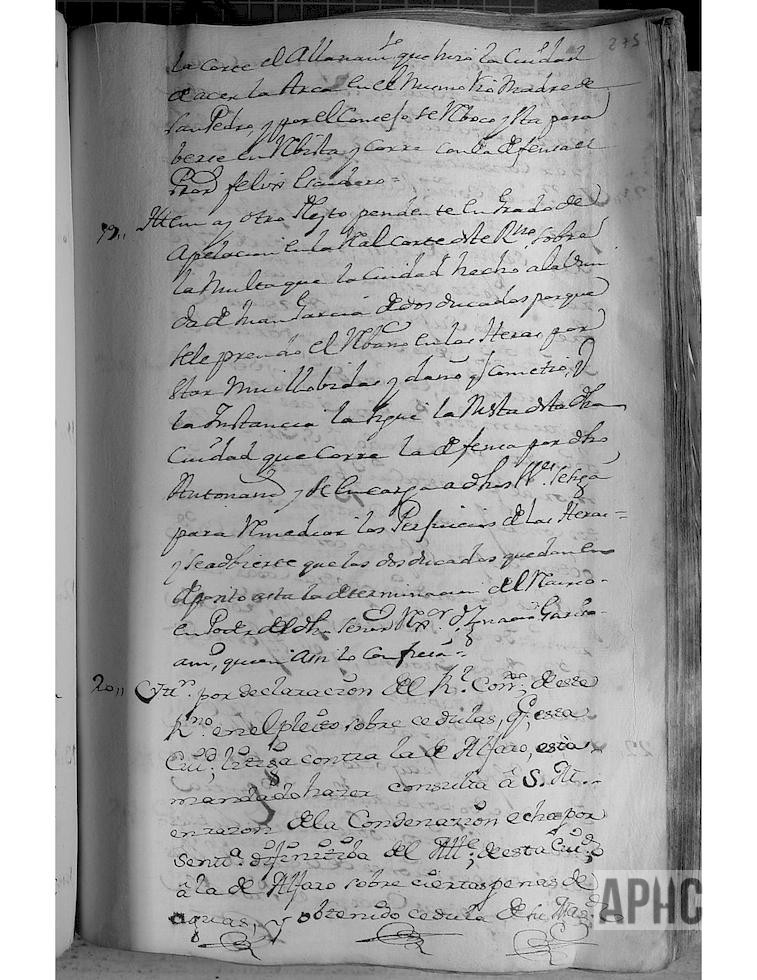 275
la Corte el Allanamto que hizo la Ciudad
de acer la Arca en el Nuevo Rio Madre de
San Pedro, y por el Concejo se
berse en Vista y corre con la defensa el
Pror felix Escudero =
19,, Itten ay otro Pleyto pendente en Grado de
Apelacion en la Real Corte deste Rno. sobre
la Multa que la Ciudad hecho a la Viu
da de Juan Garcia de dos ducados porque
se le prendo el Rebaño en las Heras por
Star Mui llobidas y daño q cometio, Y
la Instancia la sigue la Mesta desta dha
Ciudad que corre la defensa por dho
y se encarga a dhos Nes. se siga
para Remediar los Perjuicios de las Heras =
y se adbierte que los dos ducados quedan en
deposito asta la determinacion del Negocio
en Poder del dho Señor Rexor Dn Ygnacio Garcia
quien assi lo confiesa =
20,, Ytn. por declaracion del Rl. Conso. de este
Rno. en el pleito sobre cedulas, q esta
Ciud. litiga contra la de Alfaro, esta
mandado hazer consulta á S. M.
en razon de la Condenazion echa por
senta. difinitiba del Alle. de esta Ciud.
á la de Alfaro sobre ciertas penas de
aguas, y obtenido cedula de su Magd.
APHC